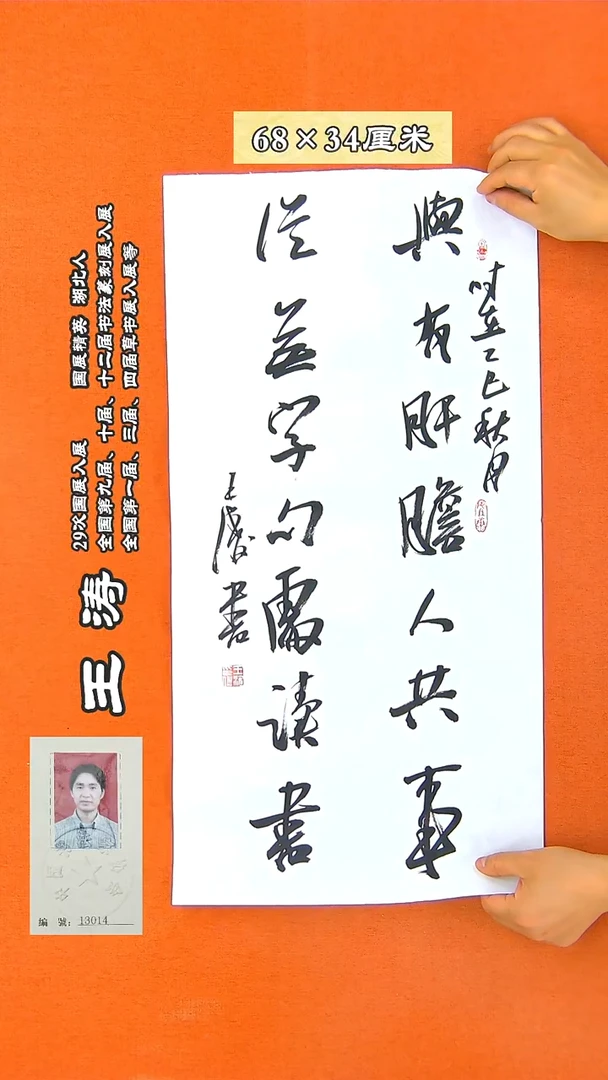 68×34厘米
時在乙巳秋月
與有肝膽人共事
從無字句處读書
王濤書
王涛
29次国展入展 国展精英 湖北人
全国第九届、十届、十二届书法篆刻展入展
全国第一届、三届、四届草书展入展等
編號：13014